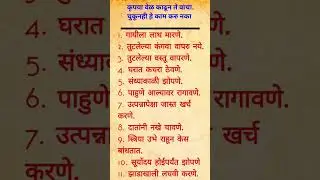 कृपया वेळ काढून ते वाचा.
चुकूनही हे काम करू नका
1. गायीला लाथ मारणे.
2. तुटलेल्या कंगवा वापरु नये.
3. तुटलेल्या वस्तू वापरणे.
4. घरात कचरा ठेवणे.
5. संध्याकाळी झोपणे.
6. पाहुणे आल्यावर रागावणे.
7. उत्पन्नापेक्षा जास्त खर्च
करणे.
8. दातांनी नखे चावणे.
9. स्त्रिया उभे राहून केस
बांधतात.
10. सूर्योदय होईपर्यंत झोपणे
11. झाडाखाली लघवी करणे.